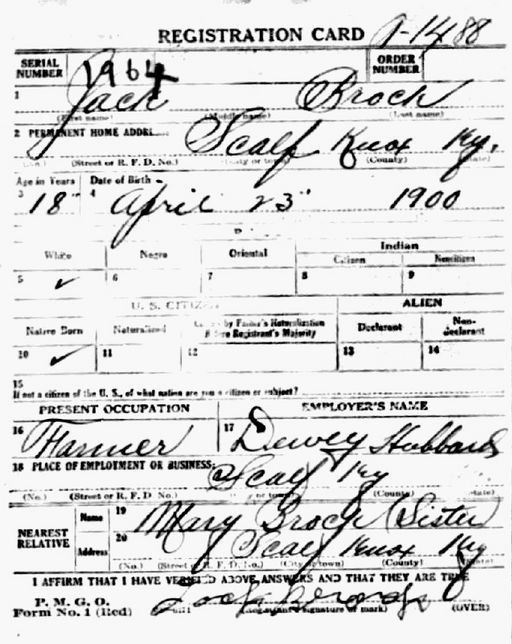 REGISTRATION CARD A-1488
SERIAL NUMBER 1964 ORDER NUMBER
1 Jack Broch
(First name) (Middle name) (Last name)
2 PERMANENT HOME ADDRE Scalf Knox Ky.
(No.) (Street or R. F. D. No.) (City or town) (County) (State)
Age in Years Date of Birth
3 18 4 April 23 1900
Indian
White Negro Oriental Citizen Noncitizen
5 ✓ 6 7 8 9
U. S. CITIZEN ALIEN
Native Born Naturalized by Father's Naturalization Before Registrant's Majority Declarant Non-declarant
10 ✓ 11 12 13 14
15
If not a citizen of the U. S., of what nation are you a citizen or subject?
PRESENT OCCUPATION EMPLOYER'S NAME
16 Farmer 17 Dewey Hubbard
18 PLACE OF EMPLOYMENT OR BUSINESS: Scalf Ky
(No.) (Street or R. F. D. No.) (City or town) (County) (State)
NEAREST RELATIVE Name 19 Mary Broch (Sister
Address 20 Scalf Knox Ky
(No.) (Street or R. F. D. No.) (City or town) (County) (State)
I AFFIRM THAT I HAVE VERIFIED ABOVE ANSWERS AND THAT THEY ARE TRUE
P. M. G. O.
Form No. 1 (Red) (Registrant's signature or mark) (OVER)